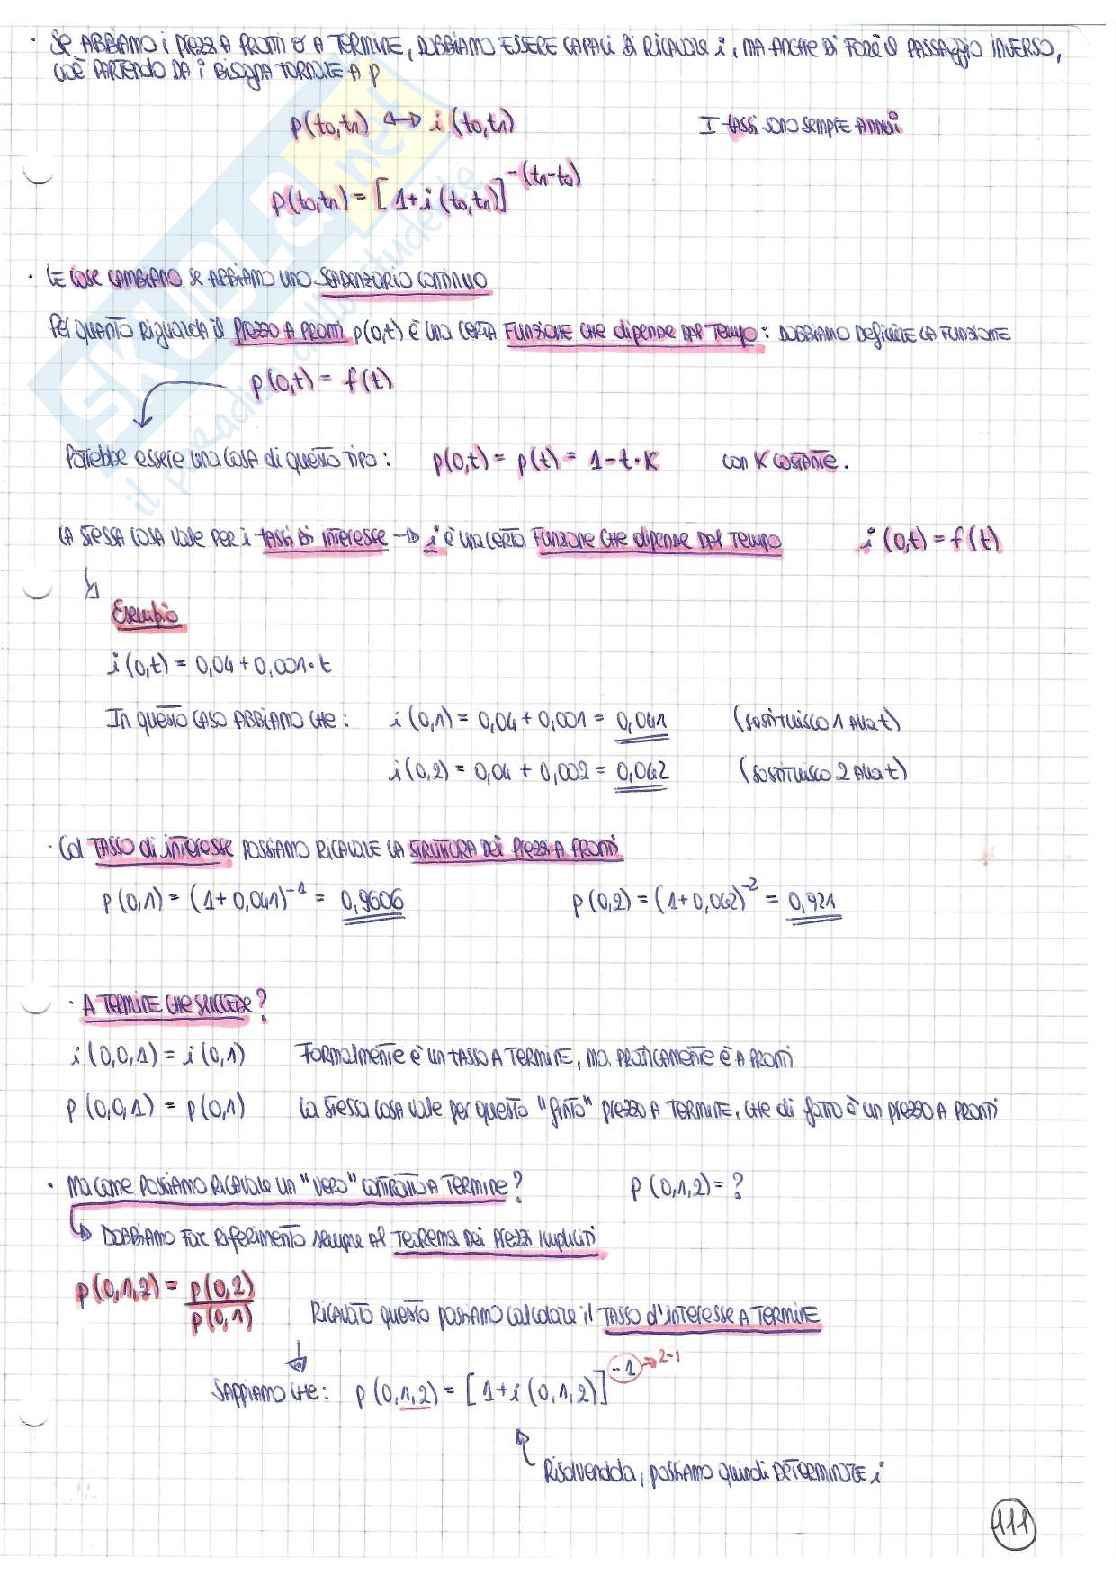 · SE ABBIAMO i PREZZI A PRONTI O A TERMINE, DOBBIAMO ESSERE CAPACI DI RICAVARE i, MA ANCHE DI FARE IL PASSAGGIO INVERSO,
CIOÈ PARTENDO DA i BISOGNA TORNARE A P
p(t0,tn) ↔ i(t0,tn) I tassi sono sempre annui
p(t0,tn) = [1+i(t0,tn)]^-(tn-t0)
· LE COSE CAMBIANO SE ABBIAMO UNO SCADENZARIO CONTINUO
Per quanto riguarda il PREZZO A PRONTI p(0,t) è una certa FUNZIONE CHE dipende DAL TEMPO: DOBBIAMO DEFINIRE LA FUNZIONE
p(0,t) = f(t)
Potrebbe essere una cosa di questo tipo: p(0,t) = p(t) = 1-t·K con K costante.
LA STESSA COSA VALE PER i TASSI DI INTERESSE → i è una certa FUNZIONE CHE dipende DAL TEMPO i(0,t) = f(t)
Esempio
i(0,t) = 0,04 + 0,001·t
In questo caso abbiamo che: i(0,1) = 0,04 + 0,001 = 0,041 (sostituisco 1 alla t)
i(0,2) = 0,04 + 0,002 = 0,042 (sostituisco 2 alla t)
· Col TASSO di interesse possiamo ricavare la STRUTTURA DEI PREZZI A PRONTI
p(0,1) = (1+0,041)^-1 = 0,9606 p(0,2) = (1+0,042)^-2 = 0,921
· A TERMINE CHE SUCCEDE?
i(0,0,1) = i(0,1) Formalmente è un tasso a termine, ma praticamente è a pronti
p(0,0,1) = p(0,1) La stessa cosa vale per questo "finto" prezzo a termine, che di fatto è un prezzo a pronti
· Ma come possiamo ricavare un "vero" contratto a termine? p(0,1,2) = ?
↳ DOBBIAMO FAR RIFERIMENTO sempre al TEOREMA DEI PREZZI IMPLICITI
p(0,1,2) = p(0,2)/p(0,1) Ricavato questo possiamo calcolare il TASSO d'interesse A TERMINE
SAPPIAMO CHE: p(0,1,2) = [1+i(0,1,2)]^-1 → 2-1
Risolvendola, possiamo quindi DETERMINARE i
111
SKUOLA.net